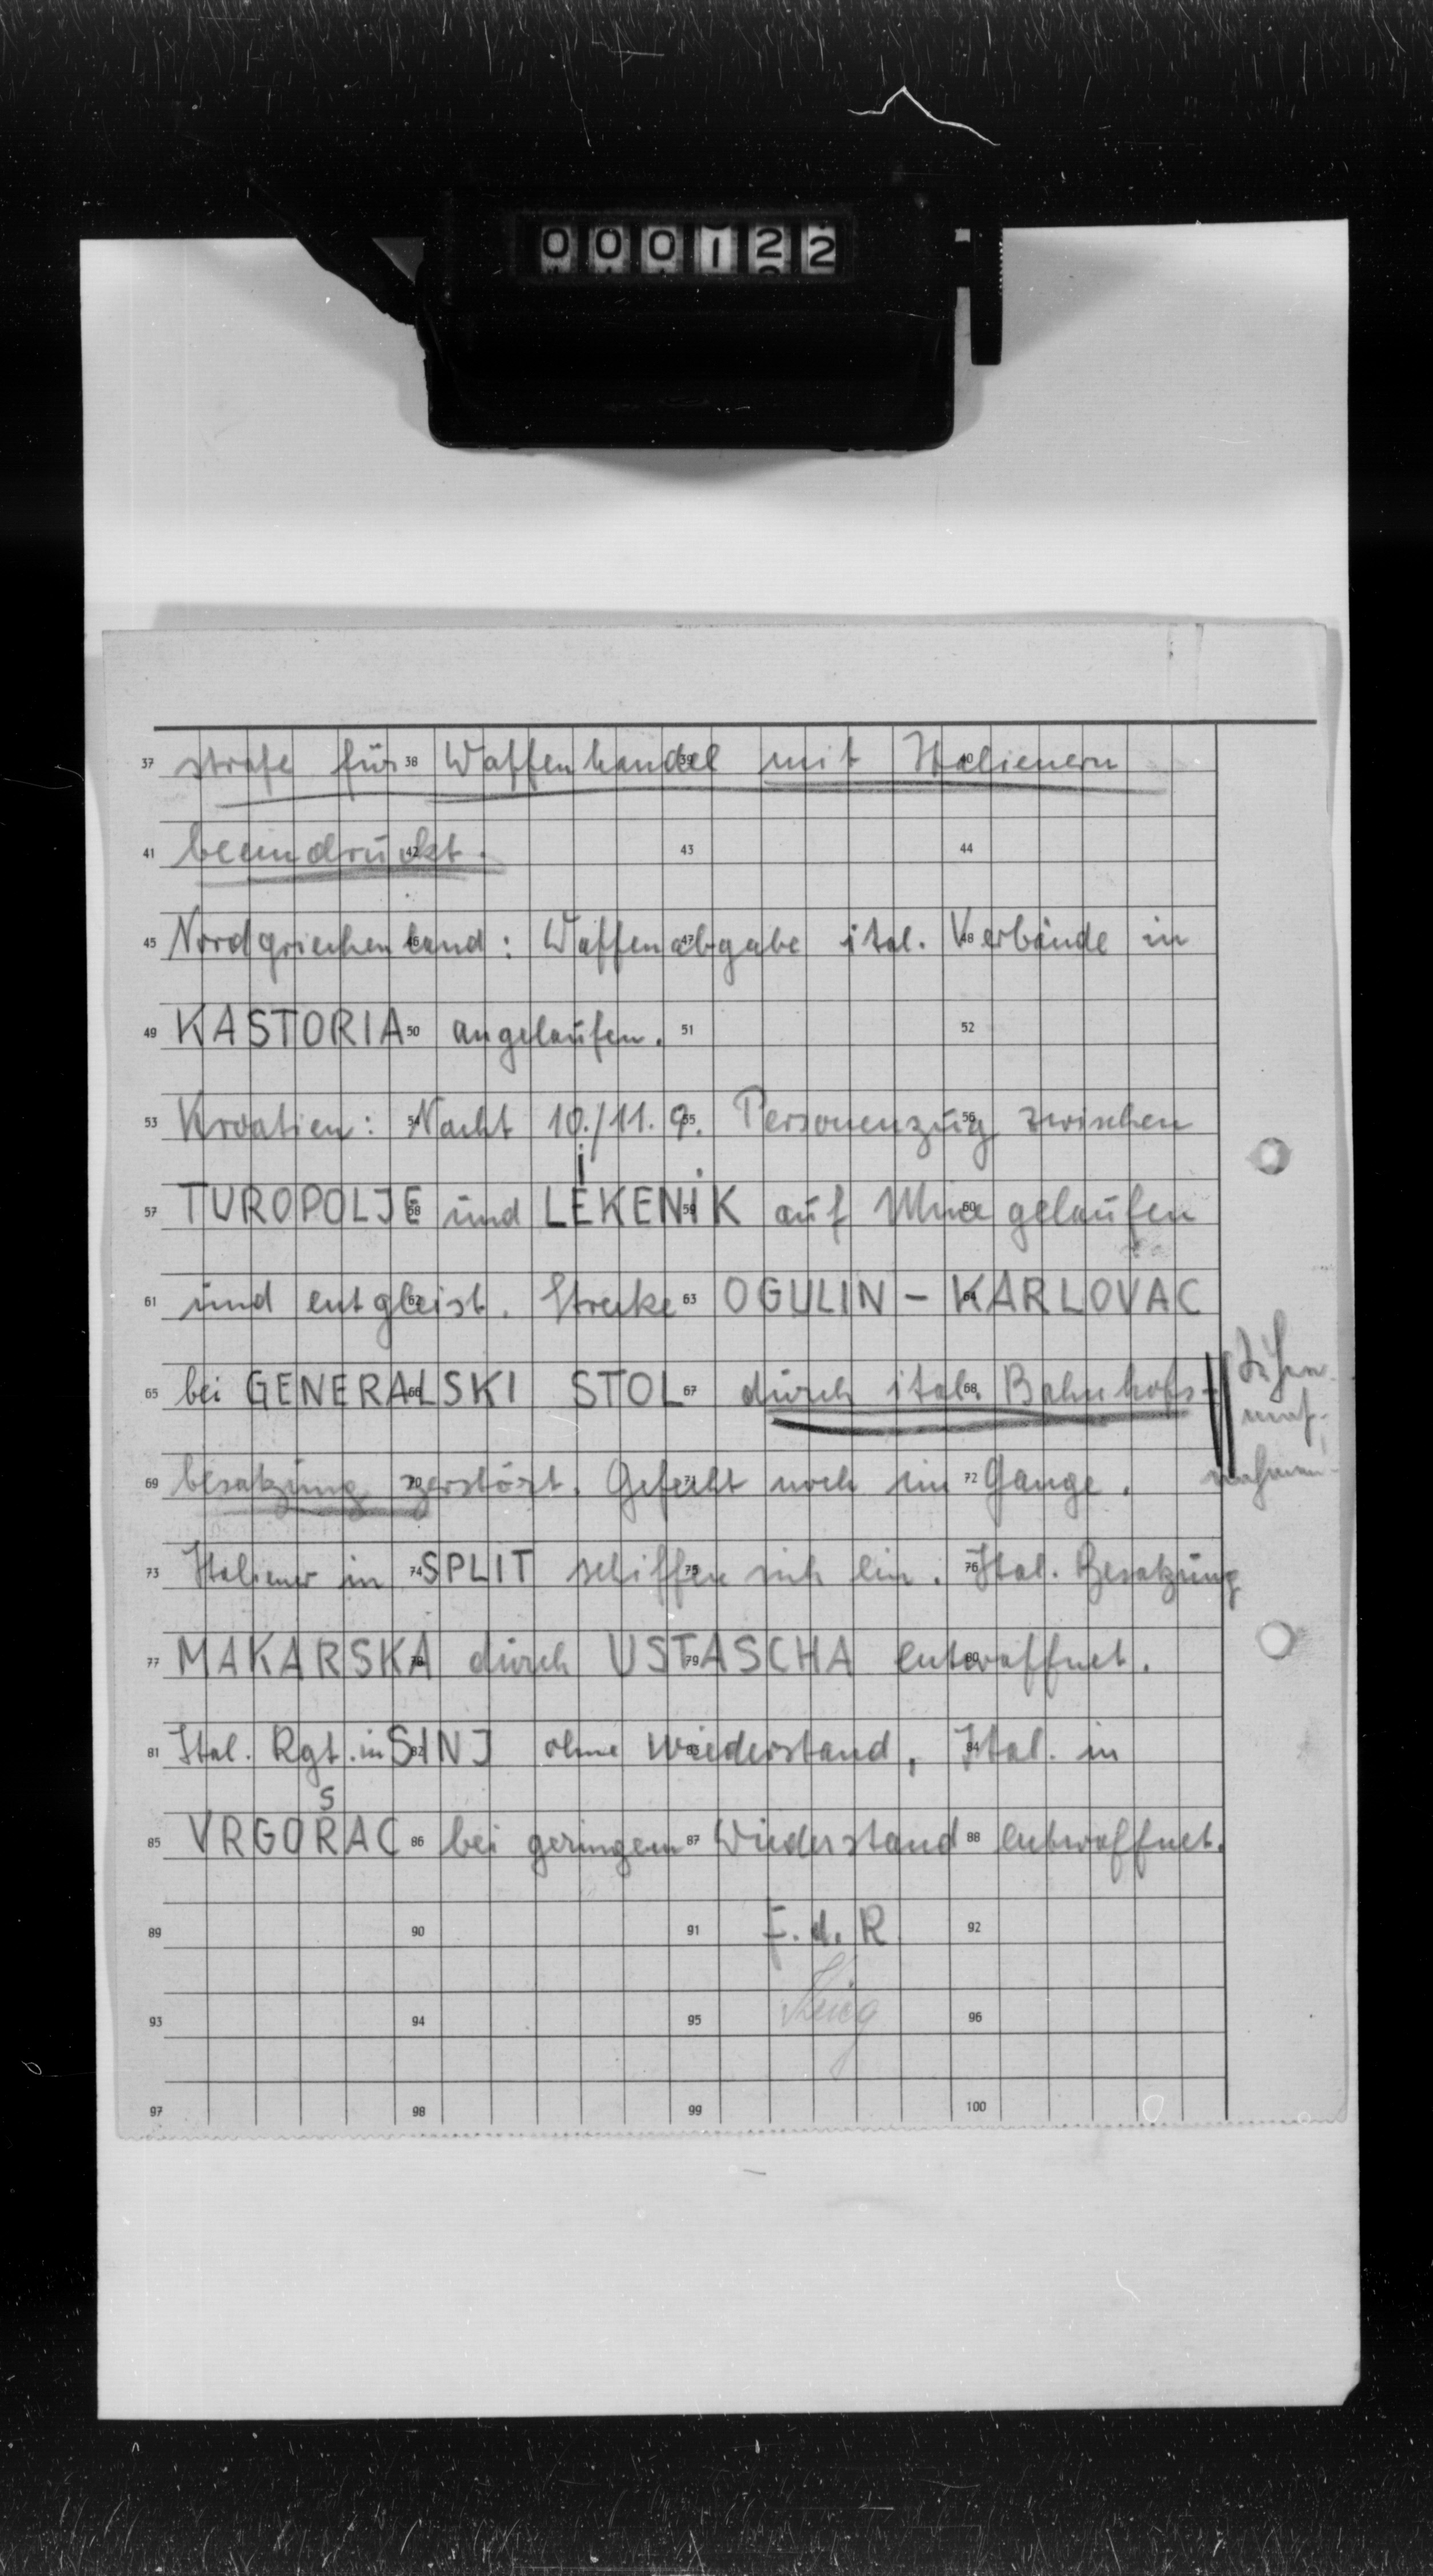 000122
37 strafe für 38 Waffenhandel 39 mit Italienern 40
41 beeindruckt. 42 43 44
45 Nordgriechenland: 46 Waffenabgabe 47 ital. Verbände 48 in
49 KASTORIA 50 angelaufen. 51 52
53 Kroatien: 54 Nacht 10./11.9. 55 Personenzug 56 zwischen
57 TUROPOLJE 58 und LEKENIK 59 auf Mine 60 gelaufen
61 und entgleist. 62 Strecke 63 OGULIN – KARLOVAC 64
65 bei GENERALSKI 66 STOL 67 durch ital. 68 Bahnhofs-
Sühne
maß-
nahmen!
69 besatzung 70 zerstört. Gefecht 71 noch im 72 Gange.
73 Italiener in 74 SPLIT schiffen 75 sich ein. 76 Ital. Besatzung
77 MAKARSKA 78 durch USTASCHA 79 entwaffnet. 80
81 Ital. Rgt. in SINJ 82 ohne Wiederstand, 83 Ital. 84 in
S
85 VRGORAC 86 bei geringem 87 Wiederstand 88 entwaffnet.
89 90 91 F.d.R 92
93 94 95 96
97 98 99 100